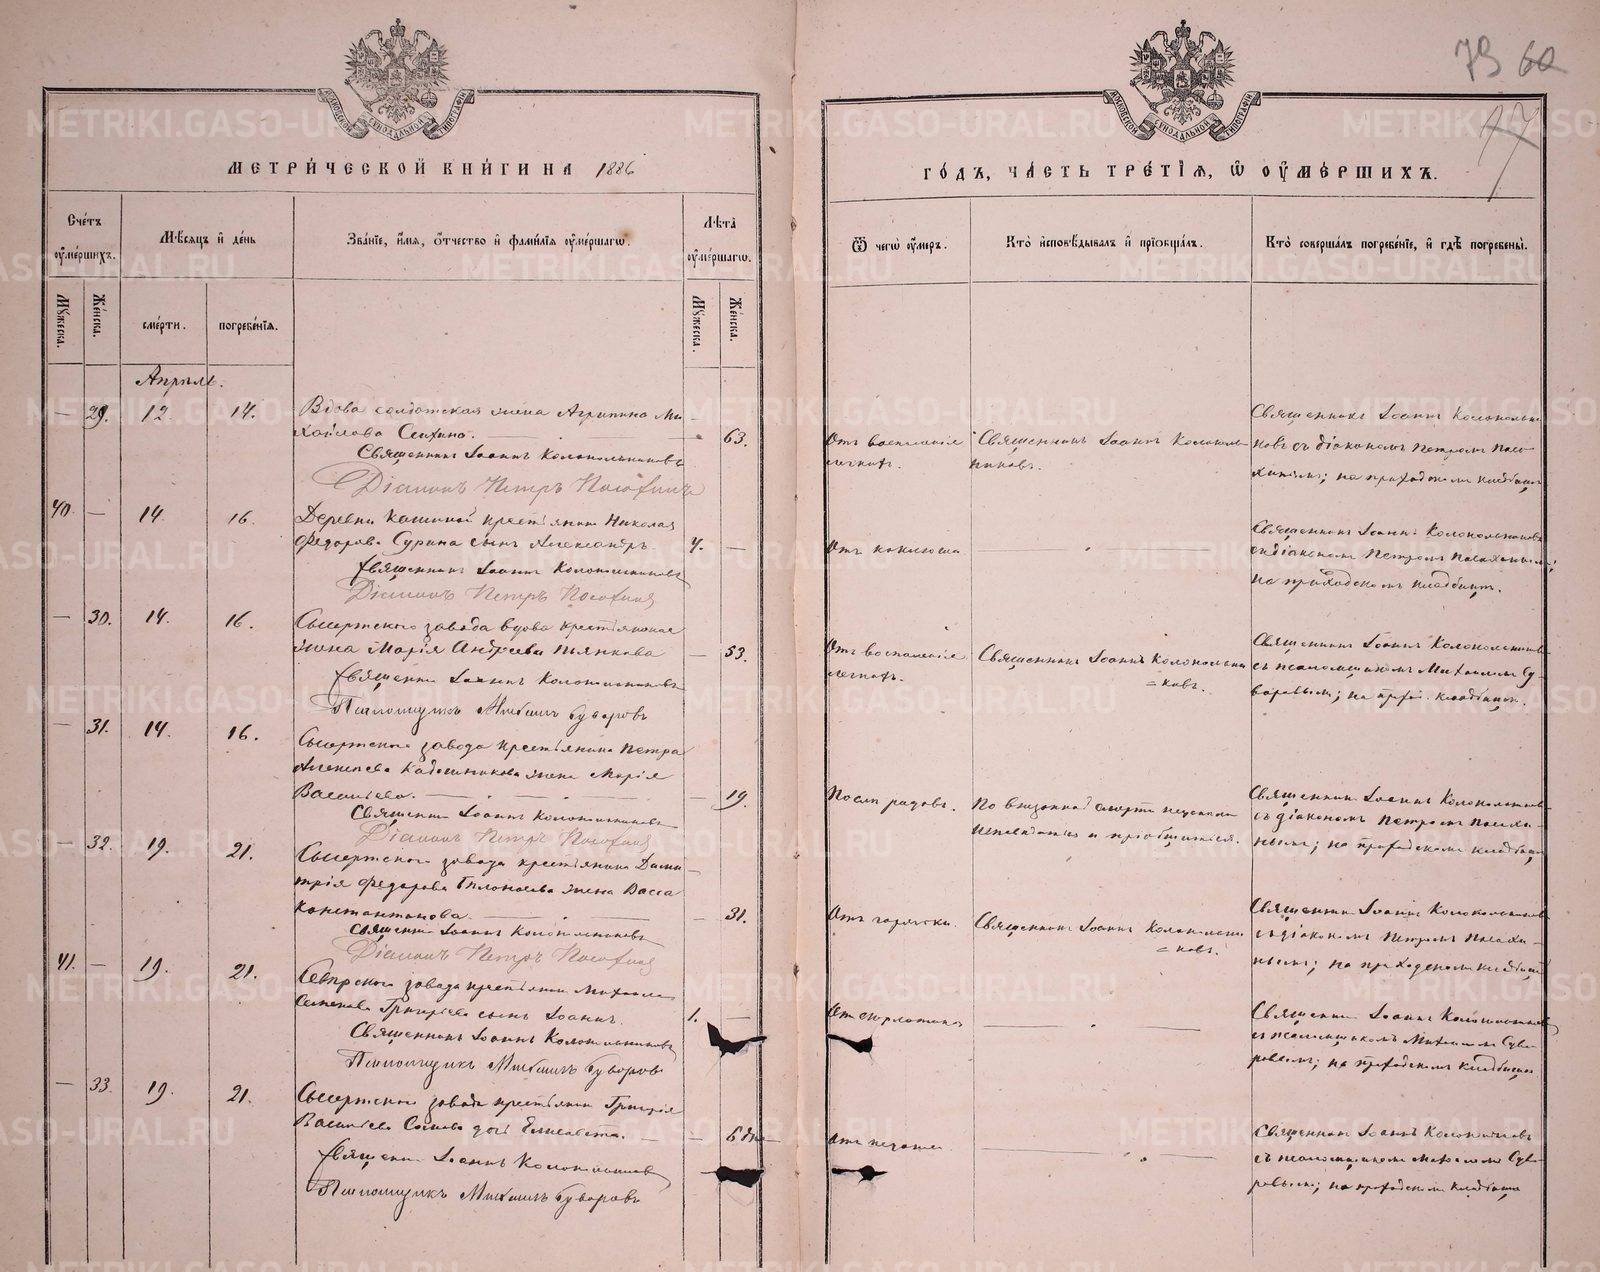 МОСКОВСКОЙ СѴНОДАЛЬНОЙ ТИПОГРАФІИ
МОСКОВСКОЙ СѴНОДАЛЬНОЙ ТИПОГРАФІИ
73 60
17
МЕТРИ́ЧЕСКОЙ КНИ́ГИ НА 1886
ГО́ДЪ, ЧА́СТЬ ТРЕ́ТІѦ, Ѡ҆ ОУ҆МЕ́РШИХЪ.
Сче́тъ оу҆ме́ршихъ.
Мѣ́сѧцъ и҆ де́нь
Зва́ніе, и҆́мѧ, ѻ҆́тчество и҆ фами́ліѧ оу҆ме́ршагѡ.
Лѣ́та оу҆ме́ршагѡ.
Ѿ чегѡ̀ оу҆́меръ.
Кто̀ и҆сповѣ́дывалъ и҆ прїѡбща́лъ.
Кто̀ соверша́лъ погребе́ніе, и҆ гдѣ̀ погребены̀.
Мꙋ́жеска.
Же́нска.
сме́рти.
погребе́ніѧ.
Мꙋ́жеска.
Же́нска.
Апрѣль.
— 29. 12. 14. Вдова солдатская жена Агрипина Ми-
хайлова — 63.
Священникъ Іоаннъ Колокольниковъ
Діаконъ Петръ
Отъ воспаленія
легкихъ.
Священникъ Іоаннъ Колоколь-
никовъ.
Священникъ Іоаннъ Колокольни-
ковъ съ діакономъ Петромъ
на приходскомъ кладбищѣ
40. — 14. 16. Деревни Кашиной крестьянина Николая
Федорова Сурина сынъ Александръ. 4. —
Священникъ Іоаннъ Колокольниковъ
Діаконъ Петръ
Отъ коклюша
Священникъ Іоаннъ Колокольниковъ
съ діакономъ Петромъ
на приходскомъ кладбищѣ.
— 30. 14. 16. Сысертскаго завода вдова крестьянская
жена Марія Андреева Пьянкова — 53.
Священникъ Іоаннъ Колокольниковъ
Псаломщикъ Михаилъ Суворовъ
Отъ воспаленія
легкихъ.
Священникъ Іоаннъ Колокольни
=ковъ.
Священникъ Іоаннъ Колокольниковъ
съ псаломщикомъ Михаиломъ Су-
воровымъ; на прих. кладбищѣ.
— 31. 14. 16. Сысертскаго завода крестьянина Петра
Алексѣева жена Марія
Васильева. — 19.
Священникъ Іоаннъ Колокольниковъ
Діаконъ Петръ
Послѣ родовъ.
По внезапной смерти не успѣли
исповѣдать и
Священникъ Іоаннъ Колокольниковъ
съ діакономъ Петромъ
на приходскомъ кладбищѣ
— 32. 19. 21. Сысертскаго завода крестьянина Дими-
трія Федорова жена Васса
Константинова. — 31.
Священникъ Іоаннъ Колокольниковъ
Діаконъ Петръ
Отъ горячки.
Священникъ Іоаннъ Колокольни
=ковъ.
Священникъ Іоаннъ Колокольниковъ
съ діакономъ Петромъ
на приходскомъ кладбищѣ
41. — 19. 21. Сѣверскаго завода крестьянина Михаила
Семенова Григорьева сынъ Іоаннъ. 1. —
Священникъ Іоаннъ Колокольниковъ
Псаломщикъ Михаилъ Суворовъ
Отъ скарлатины
Священникъ Іоаннъ Колокольниковъ
съ псаломщикомъ Михаиломъ Суво-
ровымъ; на приходскомъ кладбищѣ
— 33. 19. 21. Сысертскаго завода крестьянина Григорія
Васильева дочь Елисавета. — 6 дн.
Священникъ Іоаннъ Колокольниковъ
Псаломщикъ Михаилъ Суворовъ
Священникъ Іоаннъ Колокольниковъ
съ псаломщикомъ Михаиломъ Суво-
ровымъ; на приходскомъ кладбищѣ
METRIKI.GASO-URAL.RU